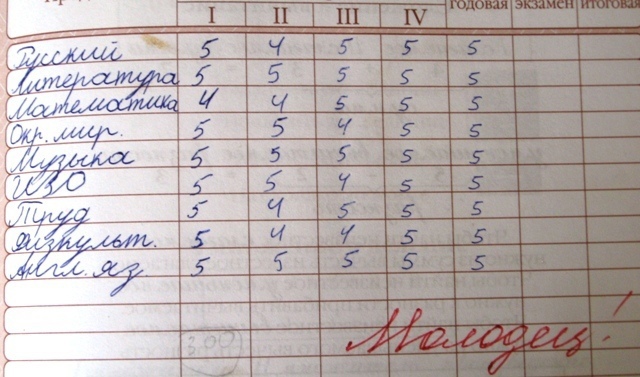 I II III IV годовая экзамен итоговая
Русский 5 4 5 5 5
Литература 5 5 5 5 5
Математика 4 4 5 5 5
Окр. мир. 5 5 4 5 5
Музыка 5 5 5 5 5
ИЗО 5 5 4 5 5
Труд 5 4 5 5 5
Физкульт. 5 4 4 5 5
Англ. яз 5 5 5 5 5
Молодец!